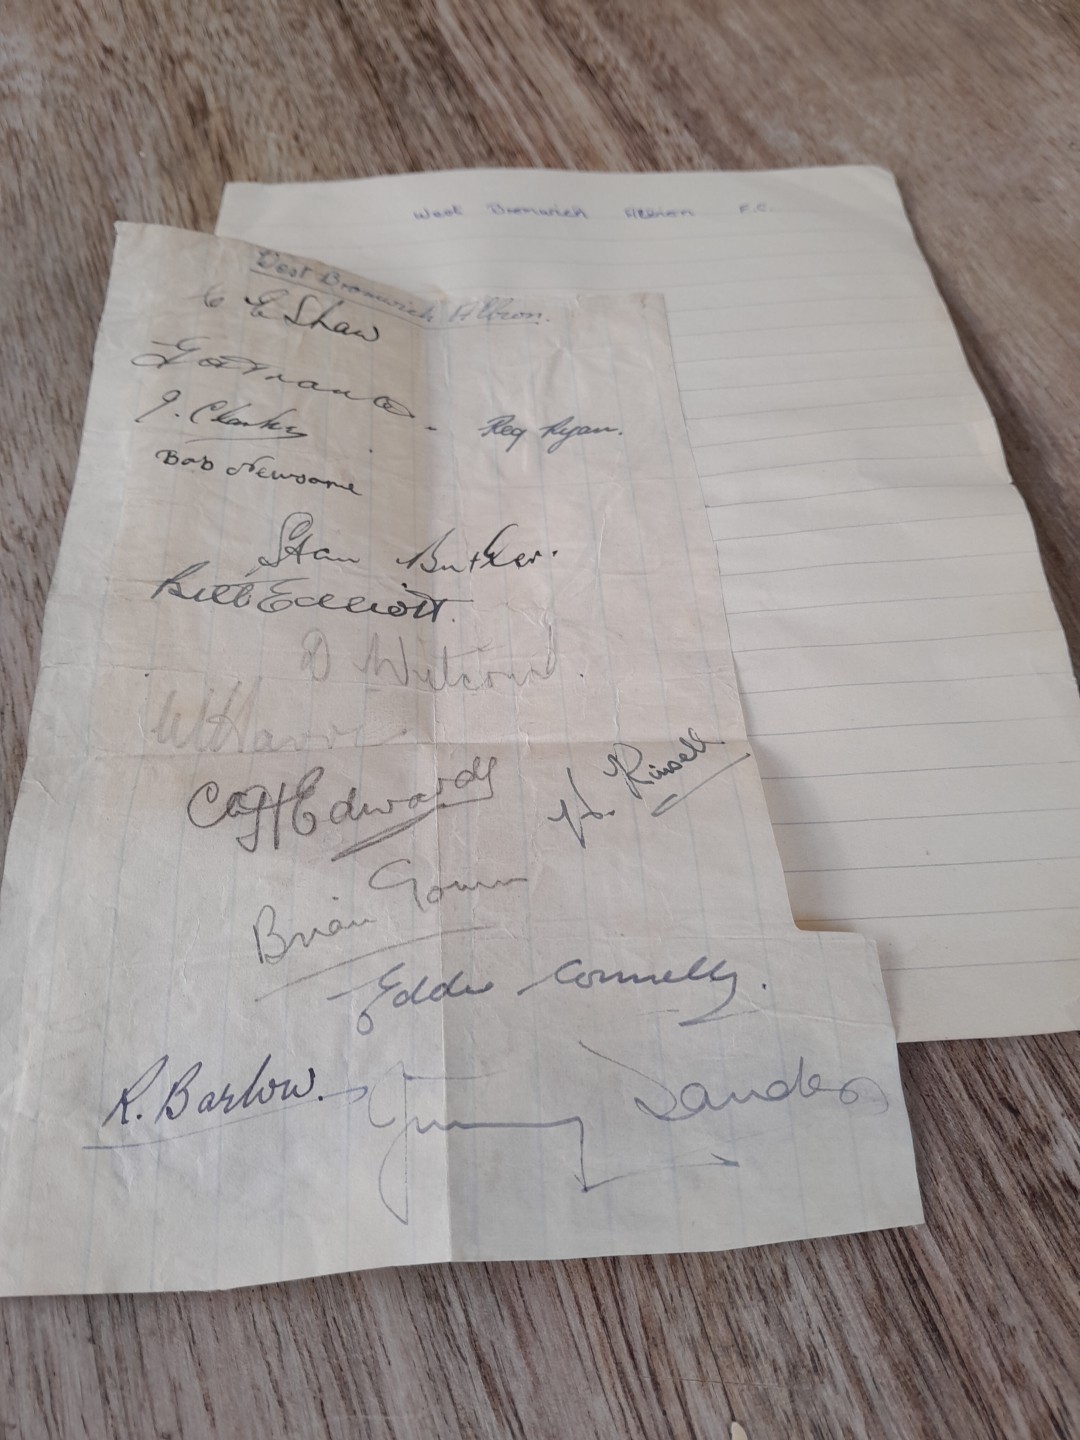 West Bromwich Albion F.C.
West Bromwich Albion.
C E Shaw
G. Tranter.
J. Clarke
Reg Ryan.
Bob Newsome
Stan Butler.
Bill Elliott.
D Witcomb.
Cliff Edwards
H. Kinsell
Brian
Eddie Connelly.
R. Barlow.
Jimmy Sanders